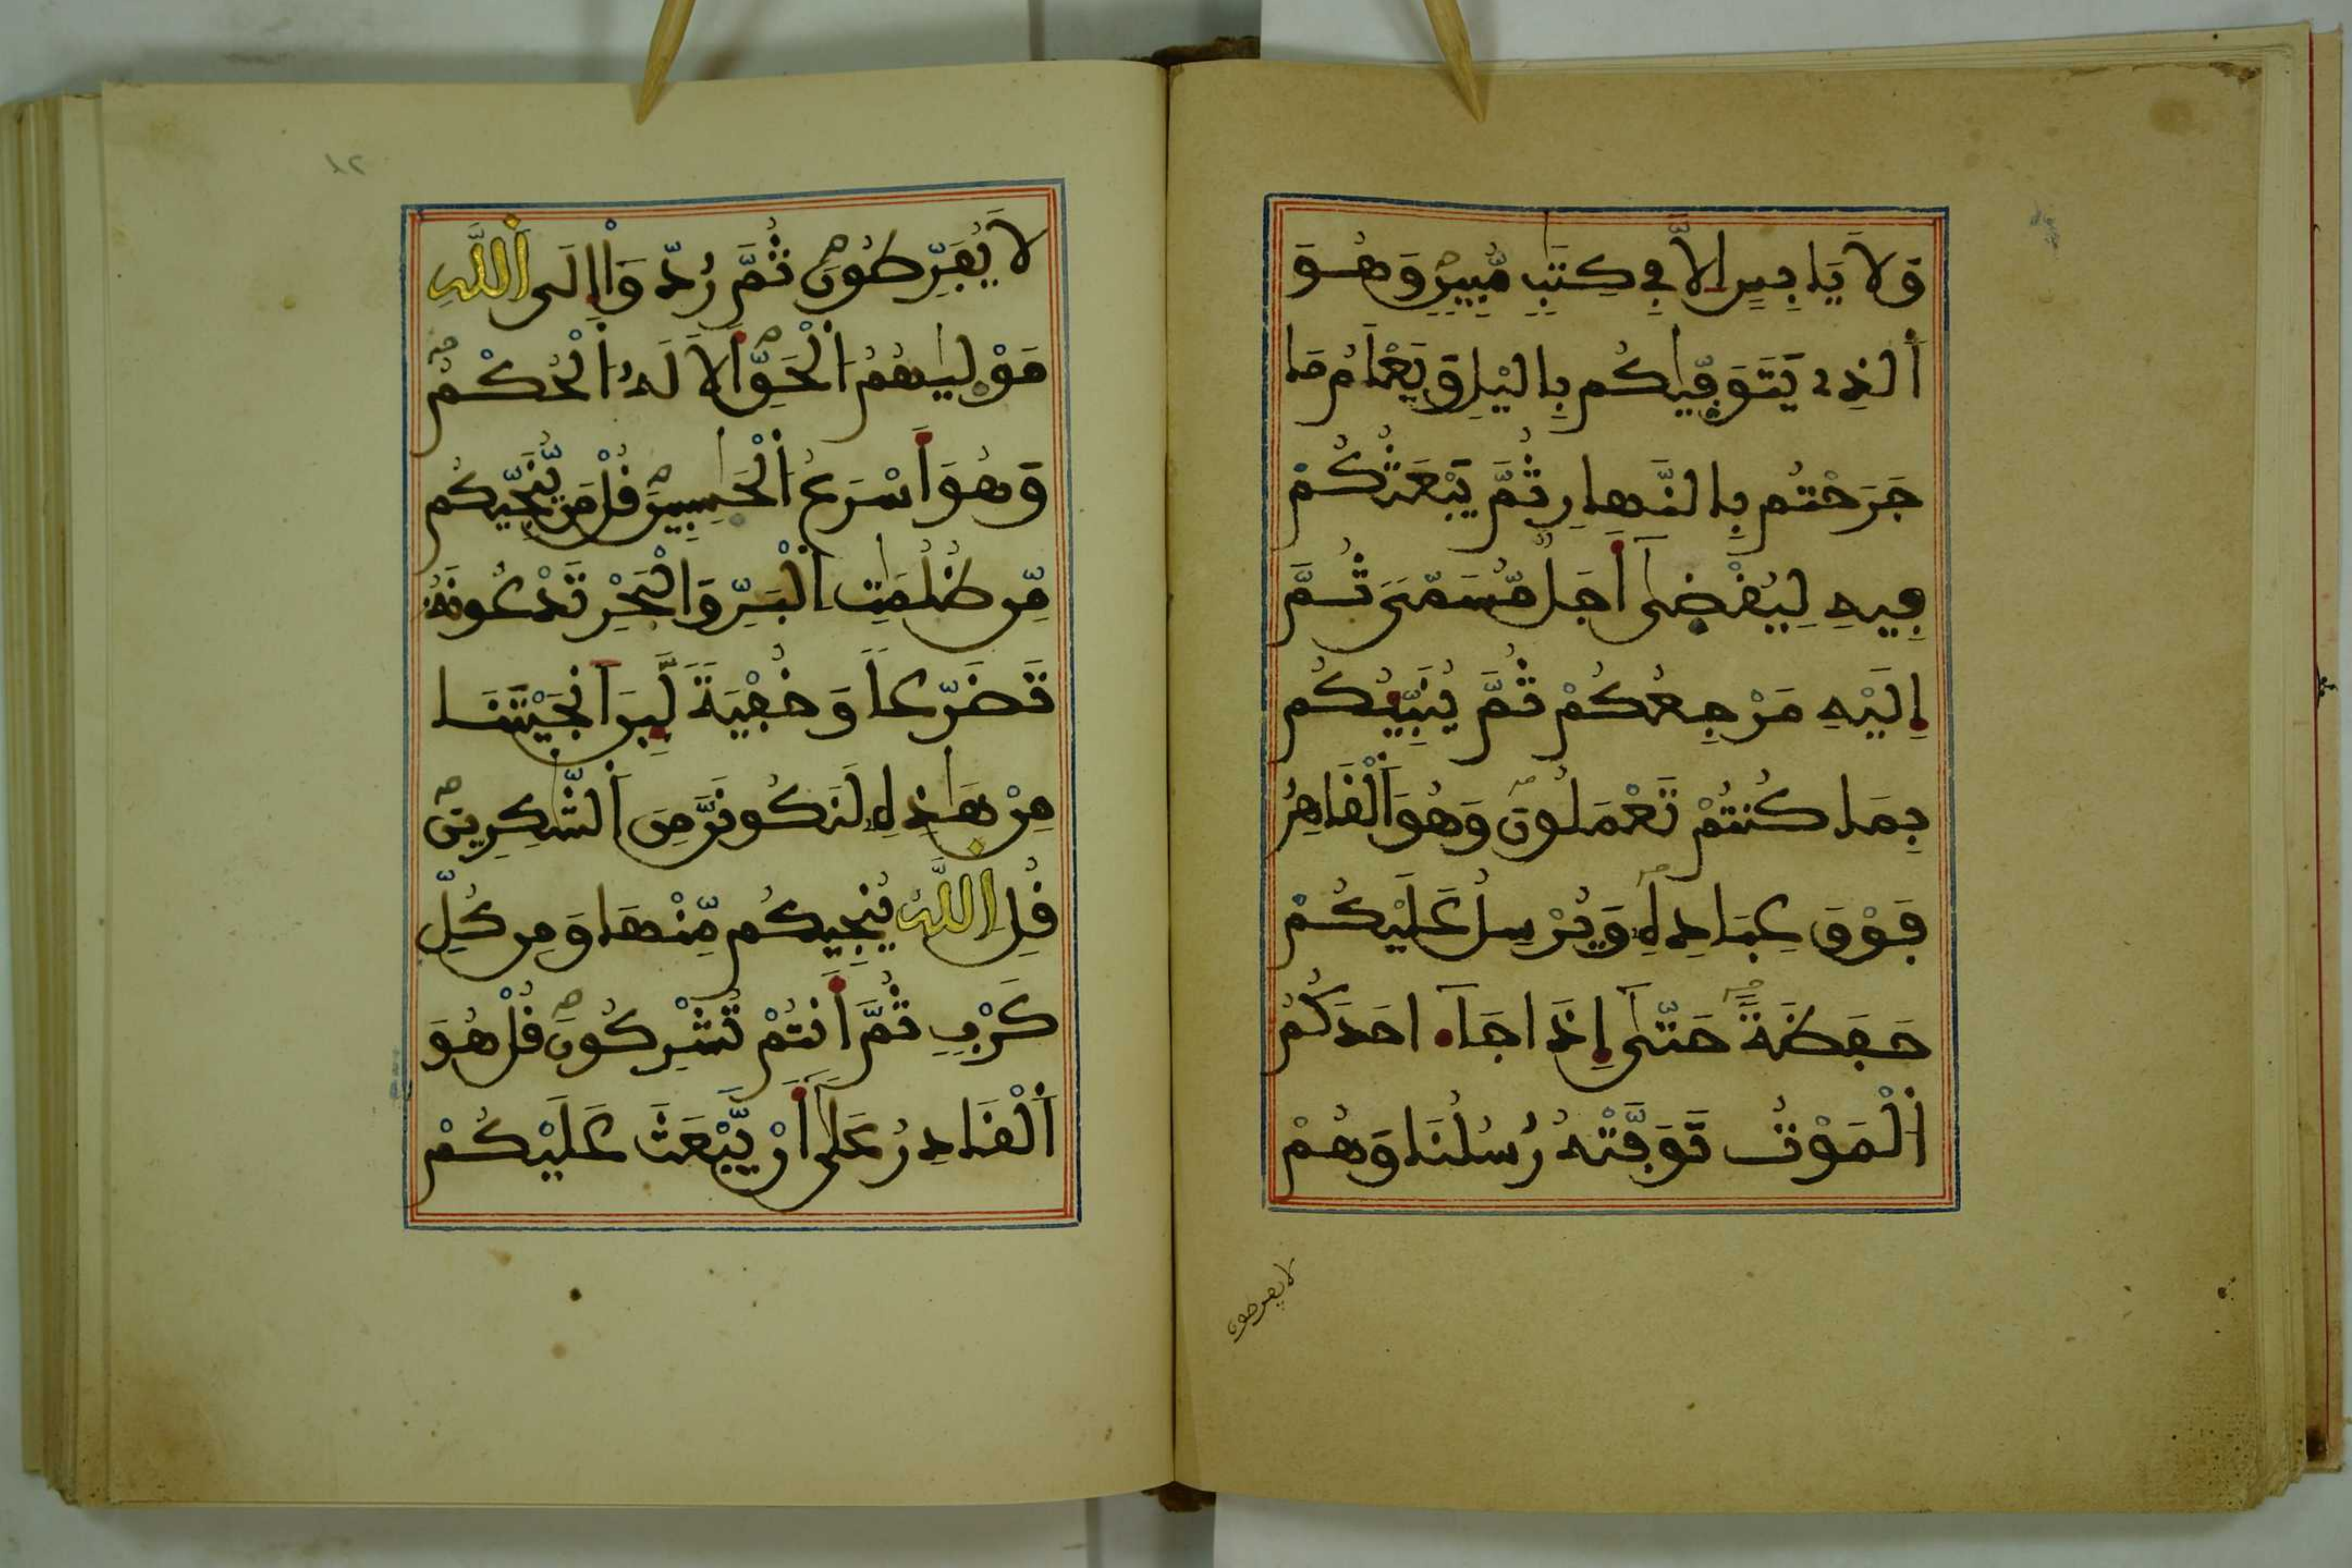 وَلَا يَابِسٍ اِلَّا فِي كِتَٰبٍ مُّبِينٍ وَهُوَ
اَ۬لذِے يَتَوَفّ۪يٰكُم بِاليْلِ وَيَعْلَمُ مَا
جَرَحْتُم بِالنَّهارِ ثُمَّ يَبْعَثُكُمْ
فِيهِ لِيُقْضَىٰٓ أَجَلٞ مُّسَمّيٗ ثُمَّ
إِلَيْهِ مَرْجِعُكُمْ ثُمَّ يُنَبِّيُٕكُم
بِمَا كُنتُمْ تَعْمَلُونَ وَهُوَ اَ۬لْقَاهِرُ
فَوْقَ عِبَادِهِۦ وَيُرْسِلُ عَلَيْكُمْ
حَفَظَةً حَتّىٰٓ إِذَا جَآءَ احَدَكُمُ
اُ۬لْمَوْتُ تَوَفَّتْهُ رُسُلُنَا وَهُمْ
لا يفرطون
١٢
لَا يُفَرِّطُونَ ثُمَّ رُدّوٓاْ إِلَي اَ۬للَّهِ
مَوْل۪يٰهُمُ اُ۬لْحَقِّ أَلَا لَهُ اُ۬لْحُكْمُ
وَهُوَ أَسْرَعُ اُ۬لْحَٰسِبِينَ قُلْ مَن يُّنَجِّيكُم
مِّن ظُلُمَٰتِ اِ۬لْبَرِّ وَالْبَحْرِ تَدْعُونَهُۥ
تَضَرّعاً وَخُفْيَةً لَّئِنَ اَنجَيْتَنَا
مِنْ هَٰذِهِۦ لَنَكُونَنَّ مِنَ اَ۬لشَّٰكِرِينَ
قُلِ اِ۬للَّهُ يُنجِيكُم مِّنْهَا وَمِن كُلِّ
كَرْبٍ ثُمَّ أَنتُمْ تُشْرِكُونَ قُلْ هُوَ
اَ۬لْقَادِرُ عَلَىٰٓ أَنْ يَّبْعَثَ عَلَيْكُمْ